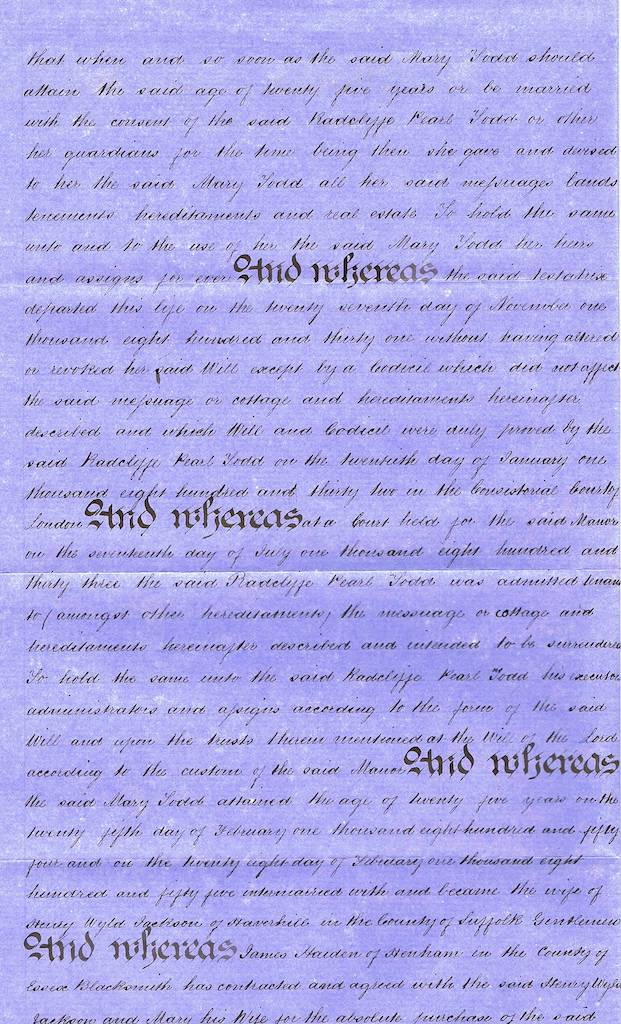 that when and so soon as the said Mary Todd should
attain the said age of twenty five years or be married
with the consent of the said Radclyffe Pearl Todd or other
her guardians for the time being then she gave and devised
to her the said Mary Todd all her said messuages lands
tenements hereditaments and real estate To hold the same
unto and to the use of her the said Mary Todd her heirs
and assigns for ever And whereas the said testatrix
departed this life on the twenty seventh day of November one
thousand eight hundred and thirty one without having altered
or revoked her said Will except by a Codicil which did not affect
the said messuage or cottage and hereditaments hereinafter
described and which Will and Codicil were duly proved by the
said Radclyffe Pearl Todd on the twentieth day of January one
thousand eight hundred and thirty two in the Consistorial Court of
London And whereas at a Court held for the said Manor
on the seventeenth day of July one thousand eight hundred and
thirty three the said Radclyffe Pearl Todd was admitted tenant
to (amongst other hereditaments) the messuage or cottage and
hereditaments hereinafter described and intended to be surrendered
To hold the same unto the said Radclyffe Pearl Todd his executors
administrators and assigns according to the form of the said
Will and upon the trusts therein mentioned at the Will of the Lord
according to the custom of the said Manor And whereas
the said Mary Todd attained the age of twenty five years on the
twenty fifth day of February one thousand eight hundred and fifty
four and on the twenty eight day of February one thousand eight
hundred and fifty five intermarried with and became the wife of
Henry Wyld Jackson of Haverhill in the County of Suffolk Gentleman
And whereas James Haiden of Henham in the County of
Essex Blacksmith has contracted and agreed with the said Henry Wyld
Jackson and Mary his Wife for the absolute purchase of the said